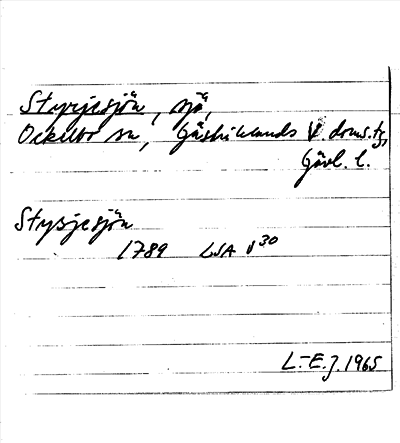 Styrjesjön, sjö,
Ockelbo sn, Gästriklands V. doms.tg,
Gävl. l.
Styrjesjön
1789 LSA V 30
L.-E. J. 1965